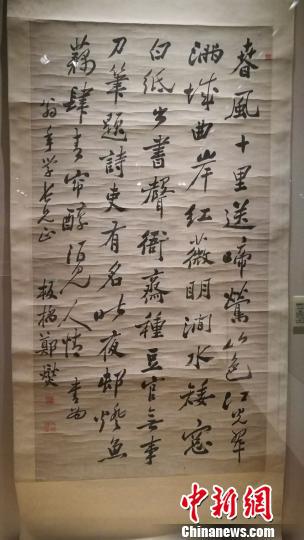 春風十里送啼鶯山色江光翠
滿城曲岸紅薇明澗水矮窗
白紙出書聲衙齋種豆官無事
刀筆題詩吏有名昨夜邨燈魚
藕肆青帘醉酒見人情 書為
翁年學老兄正 板橋鄭燮
中新網
www.chinanews.com